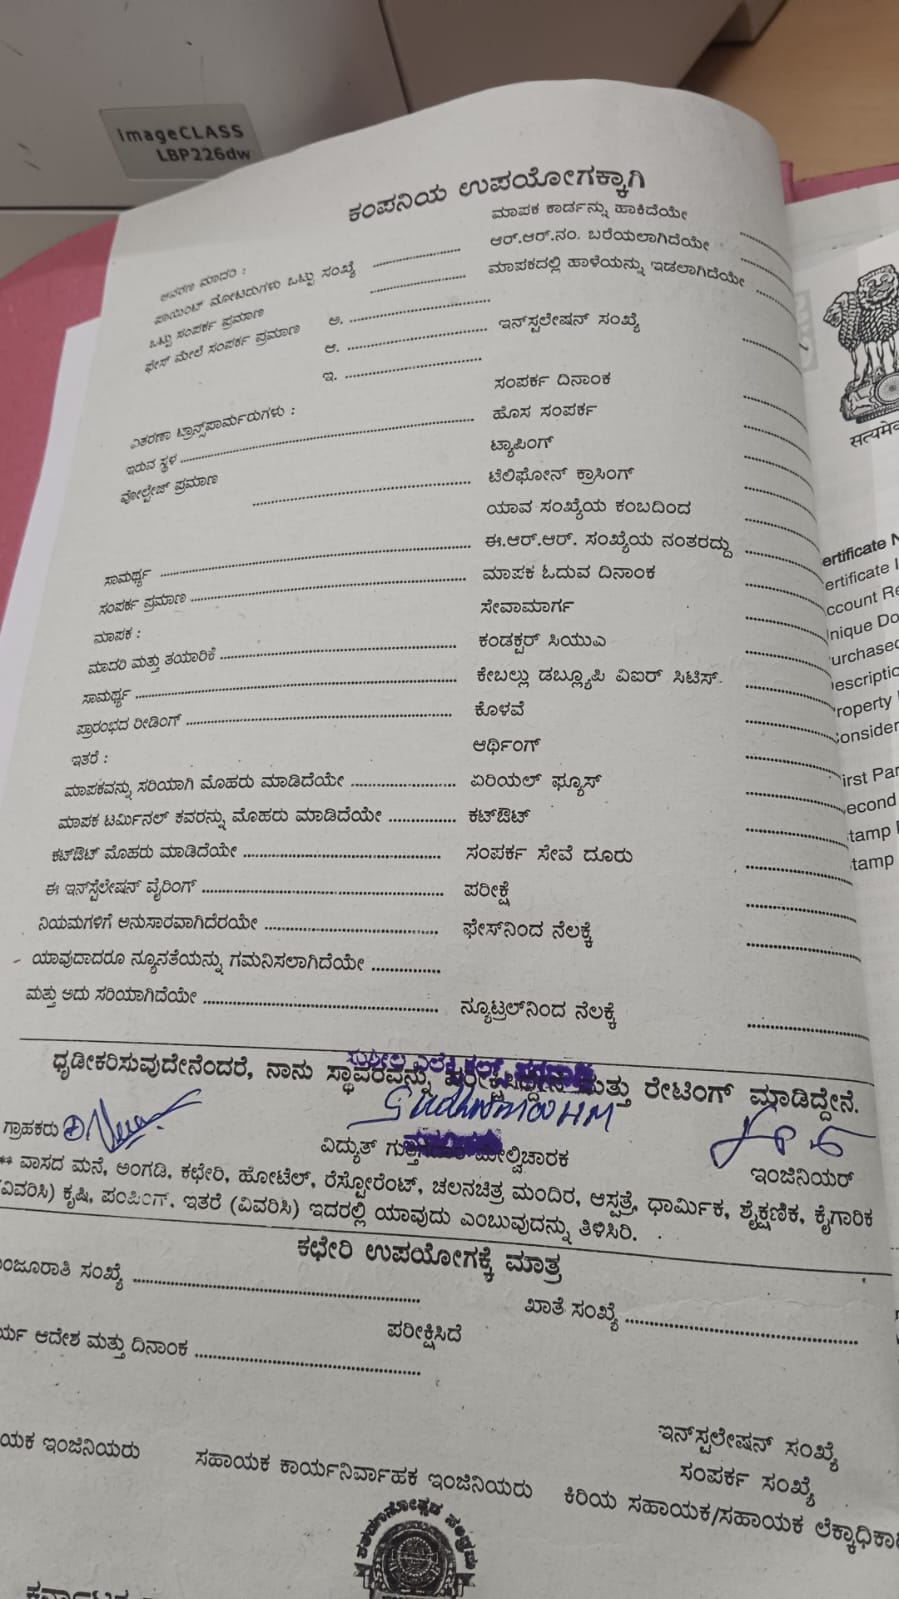 imageCLASS
LBP226dw
ಕಂಪನಿಯ ಉಪಯೋಗಕ್ಕಾಗಿ
ಮಾಪಕ ಕಾರ್ಡನ್ನು ಹಾಕಿದೆಯೇ
ಮಾದರಿ :
ಆರ್.ಆರ್.ನಂ. ಬರೆಯಲಾಗಿದೆಯೇ
ಪಾಯಿಂಟ್ ಮೋಟರುಗಳು ಒಟ್ಟು ಸಂಖ್ಯೆ
ಮಾಪಕದಲ್ಲಿ ಹಾಳೆಯನ್ನು ಇಡಲಾಗಿದೆಯೇ
ಒಟ್ಟು ಸಂಪರ್ಕ ಪ್ರಮಾಣ
ಫೇಸ್ ಮೇಲೆ ಸಂಪರ್ಕ ಪ್ರಮಾಣ ಅ.
ಆ. ಇನ್‌ಸ್ಟಲೇಷನ್ ಸಂಖ್ಯೆ
ಇ.
ಸಂಪರ್ಕ ದಿನಾಂಕ
ವಿತರಣಾ ಟ್ರಾನ್ಸ್‌ಪಾರ್ಮರುಗಳು :
ಹೊಸ ಸಂಪರ್ಕ
ಇರುವ ಸ್ಥಳ
ಟ್ಯಾಪಿಂಗ್
ವೋಲ್ಟೇಜ್ ಪ್ರಮಾಣ
ಟೆಲಿಫೋನ್ ಕ್ರಾಸಿಂಗ್
ಯಾವ ಸಂಖ್ಯೆಯ ಕಂಬದಿಂದ
ಸಾಮರ್ಥ್ಯ
ಈ.ಆರ್.ಆರ್. ಸಂಖ್ಯೆಯ ನಂತರದ್ದು
ಸಂಪರ್ಕ ಪ್ರಮಾಣ
ಮಾಪಕ ಓದುವ ದಿನಾಂಕ
ಮಾಪಕ :
ಸೇವಾಮಾರ್ಗ
ಮಾದರಿ ಮತ್ತು ತಯಾರಿಕೆ
ಕಂಡಕ್ಟರ್ ಸಿಯುಎ
ಸಾಮರ್ಥ್ಯ
ಕೇಬಲ್ಲು ಡಬ್ಲ್ಯೂಪಿ ವಿಐರ್ ಸಿಟಿಸ್.
ಪ್ರಾರಂಭದ ರೀಡಿಂಗ್
ಕೊಳವೆ
ಇತರೆ :
ಆರ್ಥಿಂಗ್
ಮಾಪಕವನ್ನು ಸರಿಯಾಗಿ ಮೊಹರು ಮಾಡಿದೆಯೇ
ಏರಿಯಲ್ ಫ್ಯೂಸ್
ಮಾಪಕ ಟರ್ಮಿನಲ್ ಕವರನ್ನು ಮೊಹರು ಮಾಡಿದೆಯೇ
ಕಟ್‌ಔಟ್
ಕಟ್‌ಔಟ್ ಮೊಹರು ಮಾಡಿದೆಯೇ
ಸಂಪರ್ಕ ಸೇವೆ ದೂರು
ಈ ಇನ್‌ಸ್ಟೆಲೇಷನ್ ವೈರಿಂಗ್
ಪರೀಕ್ಷೆ
ನಿಯಮಗಳಿಗೆ ಅನುಸಾರವಾಗಿದೆರಯೇ
ಫೇಸ್‌ನಿಂದ ನೆಲಕ್ಕೆ
ಯಾವುದಾದರೂ ನ್ಯೂನತೆಯನ್ನು ಗಮನಿಸಲಾಗಿದೆಯೇ
ಮತ್ತು ಅದು ಸರಿಯಾಗಿದೆಯೇ
ನ್ಯೂಟ್ರಲ್‌ನಿಂದ ನೆಲಕ್ಕೆ
ಧೃಡೀಕರಿಸುವುದೇನೆಂದರೆ, ನಾನು ಸ್ಥಾವರವನ್ನು ಪರೀಕ್ಷಿಸಿದ್ದೇನೆ ಮತ್ತು ರೇಟಿಂಗ್ ಮಾಡಿದ್ದೇನೆ.
ಗ್ರಾಹಕರು
ವಿದ್ಯುತ್ ಮೇಲ್ವಿಚಾರಕ
ಇಂಜಿನಿಯರ್
** ವಾಸದ ಮನೆ, ಅಂಗಡಿ, ಕಛೇರಿ, ಹೋಟೆಲ್, ರೆಸ್ಟೋರೆಂಟ್, ಚಲನಚಿತ್ರ ಮಂದಿರ, ಆಸ್ಪತ್ರೆ, ಧಾರ್ಮಿಕ, ಶೈಕ್ಷಣಿಕ, ಕೈಗಾರಿಕ
ವಿವರಿಸಿ) ಕೃಷಿ, ಪಂಪಿಂಗ್, ಇತರೆ (ವಿವರಿಸಿ) ಇದರಲ್ಲಿ ಯಾವುದು ಎಂಬುವುದನ್ನು ತಿಳಿಸಿರಿ.
ಕಛೇರಿ ಉಪಯೋಗಕ್ಕೆ ಮಾತ್ರ
ಂಜೂರಾತಿ ಸಂಖ್ಯೆ
ಖಾತೆ ಸಂಖ್ಯೆ
ಪರೀಕ್ಷಿಸಿದೆ
ರ್ಯ ಆದೇಶ ಮತ್ತು ದಿನಾಂಕ
ಇನ್‌ಸ್ಟಲೇಷನ್ ಸಂಖ್ಯೆ
ಸಂಪರ್ಕ ಸಂಖ್ಯೆ
ಯಕ ಇಂಜಿನಿಯರು
ಸಹಾಯಕ ಕಾರ್ಯನಿರ್ವಾಹಕ ಇಂಜಿನಿಯರು
ಕಿರಿಯ ಸಹಾಯಕ/ಸಹಾಯಕ ಲೆಕ್ಕಾಧಿಕಾರಿ
ಸತ್ಯಮೇವ
ertificate N
ertificate I
ccount Re
nique Do
urchased
escriptio
roperty
onsider
irst Par
econd
tamp
tamp